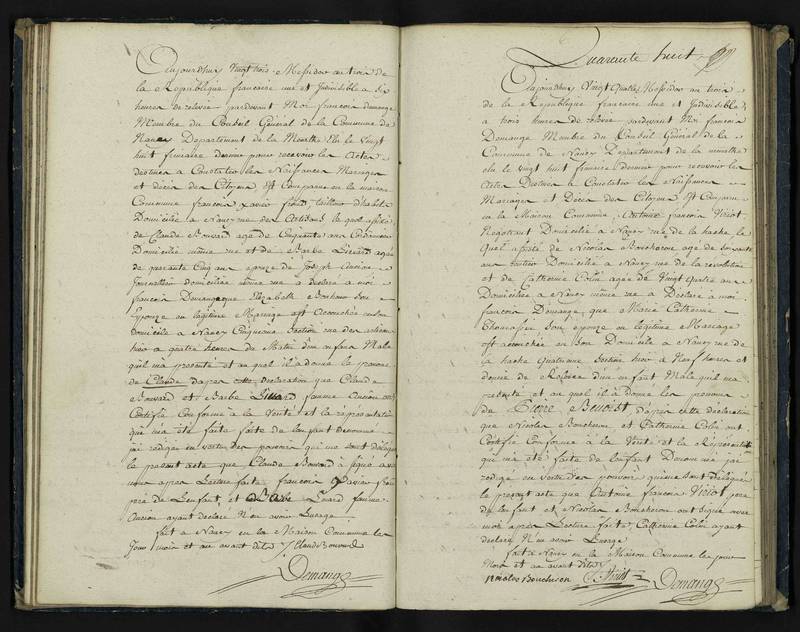 Aujourdhuy Vingt trois Messidor an trois de
la Republique francaise une et Indivisible a six
heures de relevée pardevant Moi francois domange
Membre du Conseil Général de la Commune de
Nancy Departement de la Meurthe Elu le Vingt
huit frimaire dernier pour recevoir les Actes
destinés a Constater les Naissances Mariages
et décès des Citoyens Est Comparu en la maison
Commune francois xavier tailleur d'habits
Domicilié a Nancy rue des Artisans le quel assisté
de Claude Bouvard agé de Cinquante ans Cordonnier
Domicilié même rue et de Barbe Lienard agée
de quarante Cinq ans epouze de Joseph Ancion
Journallier domiciliée même rue a déclaré a moi
francois Domange que Elizabette Bonhour son
Epouze en légitime Mariage est Accouchée en son
domicile a Nancy Cinquieme Section rue des artisans
hier a quatre heures du Matin d'un enfant Male
quil ma presenté et au quel il a donné le prenom
de Claude dapres cette declaration que Claude
Bouvard et Barbe Lienard femme Ancion ont
Certifié Conforme a la Verité et la représentation
qui m'a été faite de lenfant denommé
jai redigé en vertu des pouvoirs qui me sont délégués
le present acte que Claude Bouvard à signé avec
moi apres Lecture faite francois Xavier
pere de Lenfant et Barbe Lienard femme
Ancion ayant declaré N'en avoir Lusage
fait a Nancy en la Maison Commune les
Jour mois et an avant dits / Claude Bouvard
Domange
Quarante huit
Aujourdhuy Vingt Quatre Messidor an trois
de la Republique francaise une et Indivisible
a trois heures de relevée pardevant Moi francois
Domange Membre du Conseil Général de la
Commune de Nancy Departement de la meurthe
elu le vingt huit frimaire dernier pour recevoir les
Actes Destinés a Constater les Naissances
Mariages et Décès des Citoyens Est Comparu
en la Maison Commune Antoine francois Viriot
Negotiant Domicilié a Nancy rue de la hache le
Quel assisté de Nicolas Boucheron agé de soixante
ans Domicilié a Nancy rue de la revolution
et de Catherine Colin agée de Vingt quatre ans
Domiciliée a Nancy même rue a Déclaré a moi
francois Domange, que Marie Catherine
Thomassin son epouze en légitime Mariage
est accouchée en son Domicile a Nancy rue de
la hache quatrieme Section hier a Neuf heures et
demie de Relevée d'un enfant Male quil ma
presenté et au quel il à donné les prenoms
de Pierre Benoist, d'après cette declaration
que Nicolas Boucheron et Catherine Colin ont
Certifié Conforme à la Verité et la Représentation
qui ma été faite de lenfant Denommé jai
redigé en vertu des pouvoirs qui me sont délégués
le present acte que Antoine francois Viriot pere
de lenfant et Nicolas Boucheron ont signé avec
moi après Lecture faite, Catherine Colin ayant
declaré N'en avoir Lusage
fait a Nancy en la Maison Commune les jour
Mois et an avant dits
Nicolas Boucheron Viriot Domange